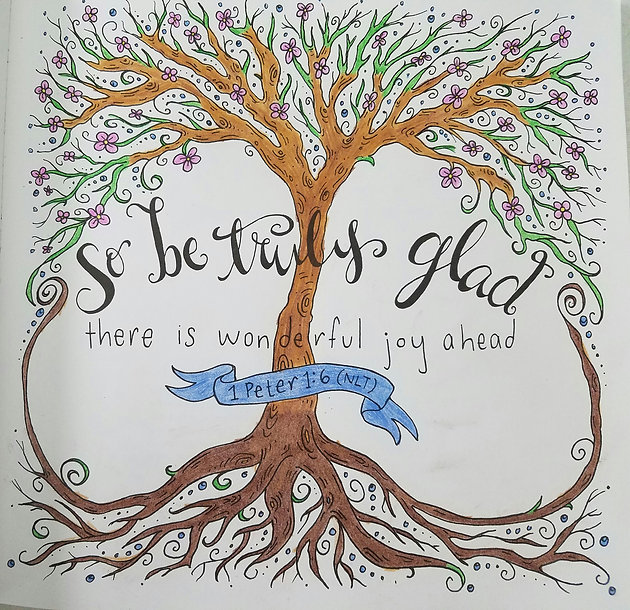 so be truly glad
there is wonderful joy ahead
1 Peter 1:6 (NLT)